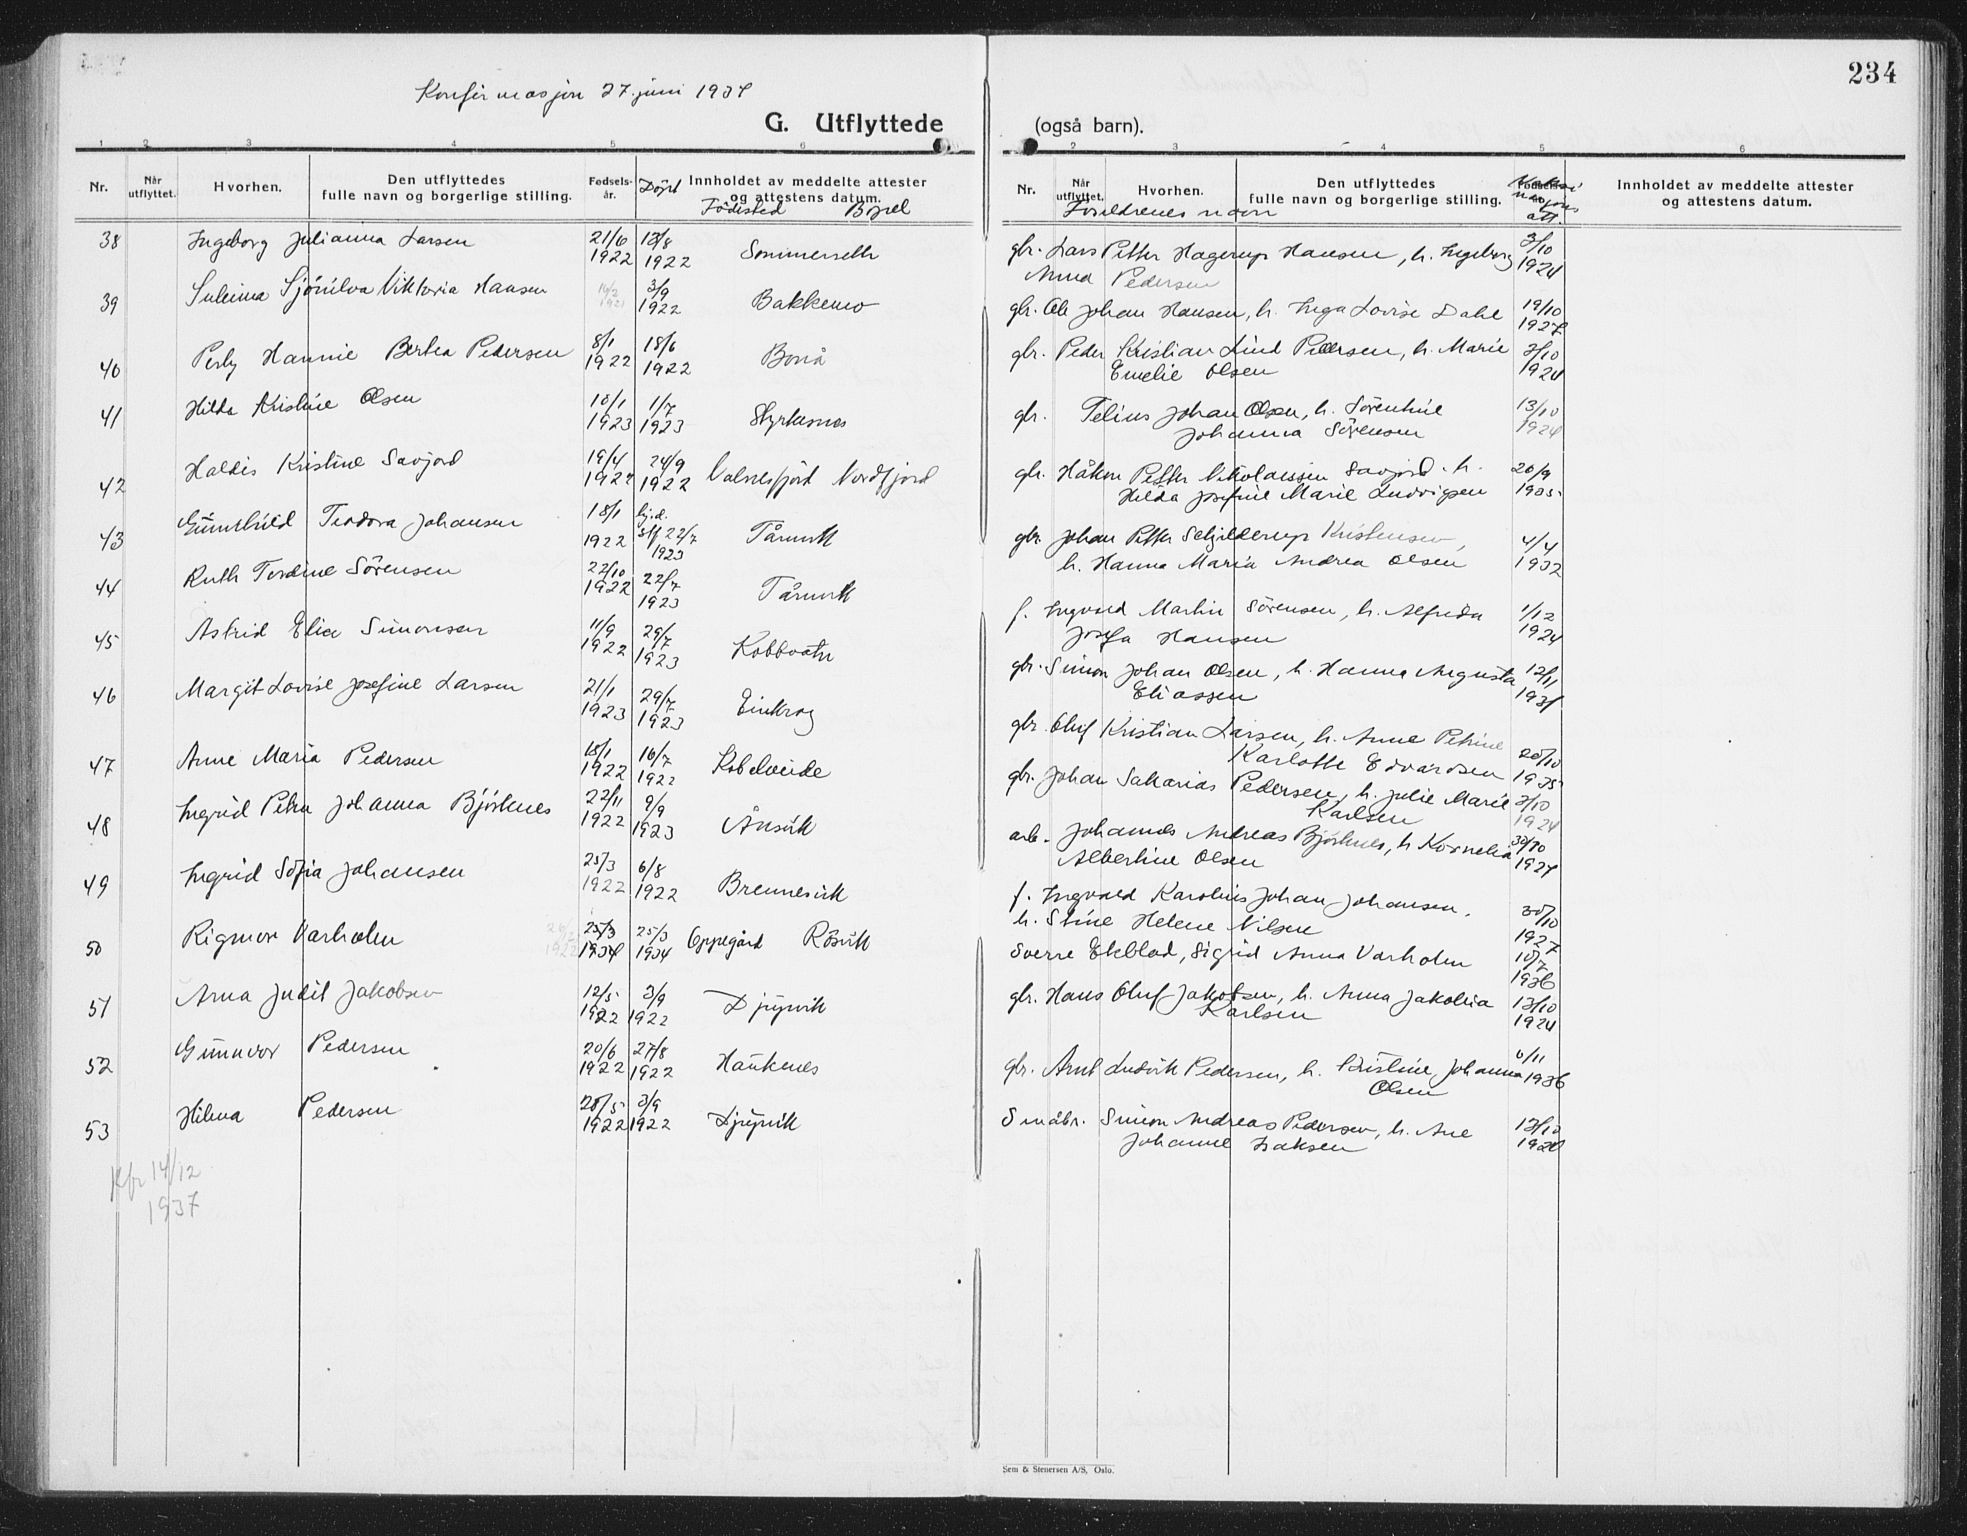 234
Konfirmasjon 27. juni 1937
G. Utflyttede
(også barn).
1 2 3 4 5 6
2 3 4 5 6
Nr. Når utflyttet. Hvorhen. Den utflyttedes fulle navn og borgerlige stilling. Fødsels-år. Döpt Innholdet av meddelte attester og attestens datum.
Födested Bopel
Nr. Når utflyttet. Hvorhen. Den utflyttedes fulle navn og borgerlige stilling. Innholdet av meddelte attester og attestens datum.
Foreldrenes navn
att.
38 Ingeborg Julianna Larsen 21/6 1922 13/8 1922 Sommerseth
39 Sjönilva Viktoria Hansen 3/9 1922 Bakkemo
40 Perly Hannie Bertea Pedersen 8/1 1922 18/6 1922 Bonå
41 Hilda Kristine Olsen 10/1 1923 1/7 1923 Styrkesnes
42 Haldis Kristine Savjord 19/4 1922 24/9 1922 Valnesfjord Nordfjord
43 Gunnhild Teodora Johansen 18/1 1922 hj.d. stf 22/7 1923 Tårnvik
44 Ruth Tordine Sörensen 22/10 1922 22/7 1923 Tårnvik
45 Astrid Elia Simonsen 11/9 1922 29/7 1923 Kobbvatn
46 Margit Lovise Josefine Larsen 21/1 1923 29/7 1923 Einkrog
47 Anne Maria Pedersen 15/1 1922 16/7 1922 Kobelveide
48 Ingrid Petra Johanna Björknes 22/11 1922 9/9 1923 Ånsvik
49 Ingrid Sofia Johansen 25/3 1922 6/8 1922 Brennesvik
50 Rigmor Varholm 25/3 1934 25/3 1934 Oppegård Rösvik
51 Arna Judit Jakobsen 12/5 1922 3/9 1922 Djupvik
52 Gunnvor Pedersen 20/6 1922 27/8 1922 Haukenes
53 Hilma Pedersen 28/5 1922 3/9 1922 Djupvik
Kfr 14/12
1937
gbr. Lars Petter Hagerup Hansen, h. Ingeborg 3/10 1924
Anna Pedersen
gbr. Ole Johan Hansen, h. Inga Lovise Dahl 19/10 1927
gbr. Peder Kristian Lind Pedersen, h. Marie 3/10 1924
Emelie Olsen
gbr. Telius Johan Olsen, h. Sörentine 13/10 1924
Johanna Sörensen
gbr. Håkon Petter Nikolaissen Savjord. h. 20/9 1935
Hilda Josefine Marie Ludvigsen
gbr. Johan Petter Schjelderup Kristensen, 4/4 1932
h. Hanna Maria Andrea Olsen
f. Ingvald Martin Sörensen, h. Alfreda 1/12 1924
Josefa Hansen
gbr. Simon Johan Olsen, h. Hanna Augusta 12/11
Eliassen
gbr. Oluf Kristian Larsen, h. Anne Petrine
Karlotte Edvardsen 20/10 1935
gbr. Johan Sakarias Pedersen, h. Julie Marie 3/10 1924
Karlsen
arb. Johannes Andreas Björknes, h. Kornelia 30/10 1927
Albertine Olsen
f. Ingvald Karolius Johan Johansen,
h. Stine Helene Nilsen 30/10 1927
Sverre Ekblad, Sigrid Anna Varholm 10/7 1936
gbr. Hans Oluf Jakobsen, h. Anna Jakobia 13/10 1924
Karlsen
gbr. Arnt Ludvik Pedersen, h. Kristine Johanna 6/11 1936
Olsen
Småbr. Simon Andreas Pedersen, h. Ane 13/10 1924
Johanne Isaksen
Sem & Stenersen A/S, Oslo.